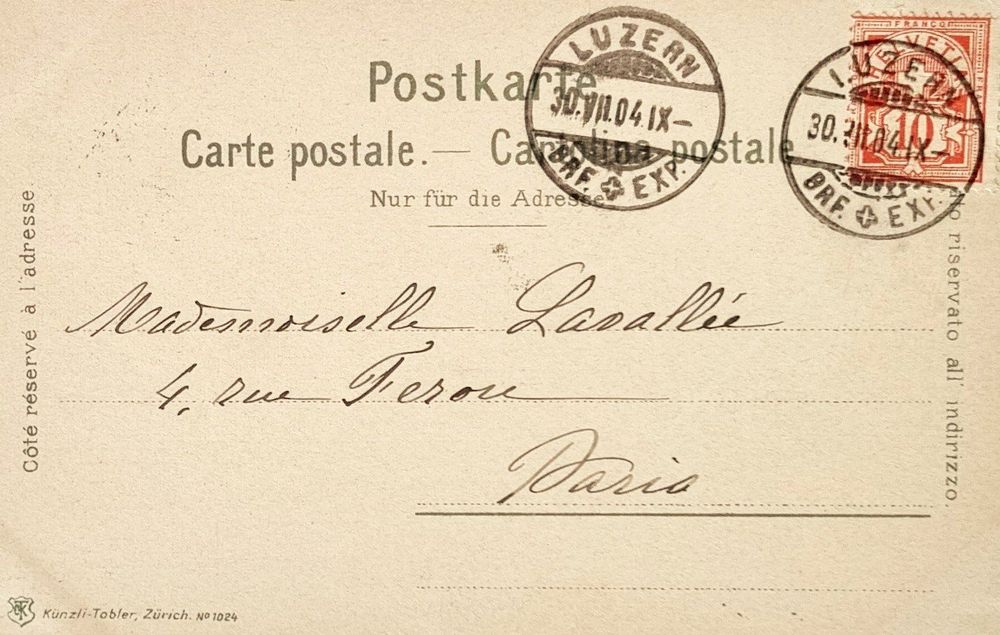 Postkarte
Carte postale. — Cartolina postale
Nur für die Adresse
LUZERN
30.VII.04.IX–
BRF. EXP.
FRANCO
HELVETIA
10
LUZERN
30.VII.04.IX–
BRF. EXP.
Côté réservé à l'adresse
Lato riservato all' indirizzo.
Mademoiselle Lavallée
4, rue Ferou
Paris
Künzli-Tobler, Zürich. No 1024